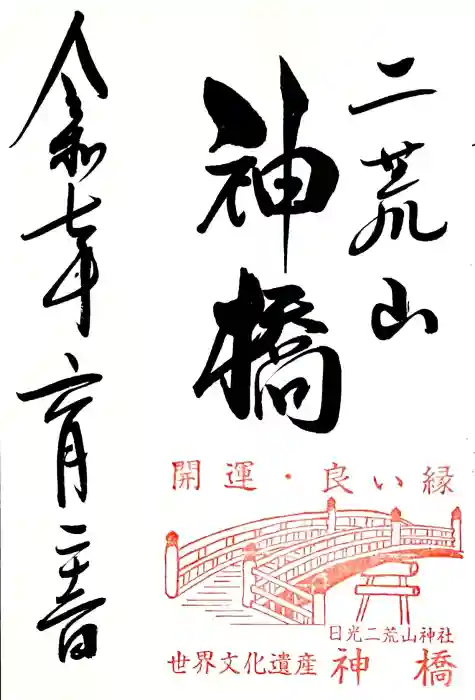 二荒山
神橋
令和七年六月二十日
開運・良い縁
日光二荒山神社
世界文化遺産 神橋